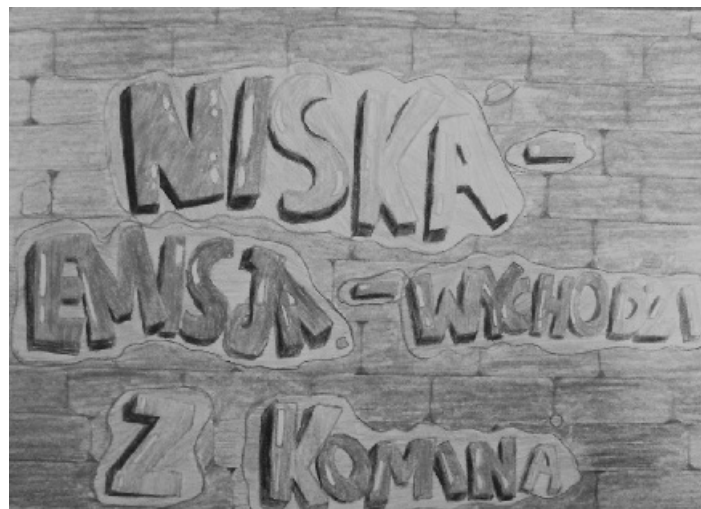 NISKA-
EMISJA-WYCHODZI
Z KOMINA